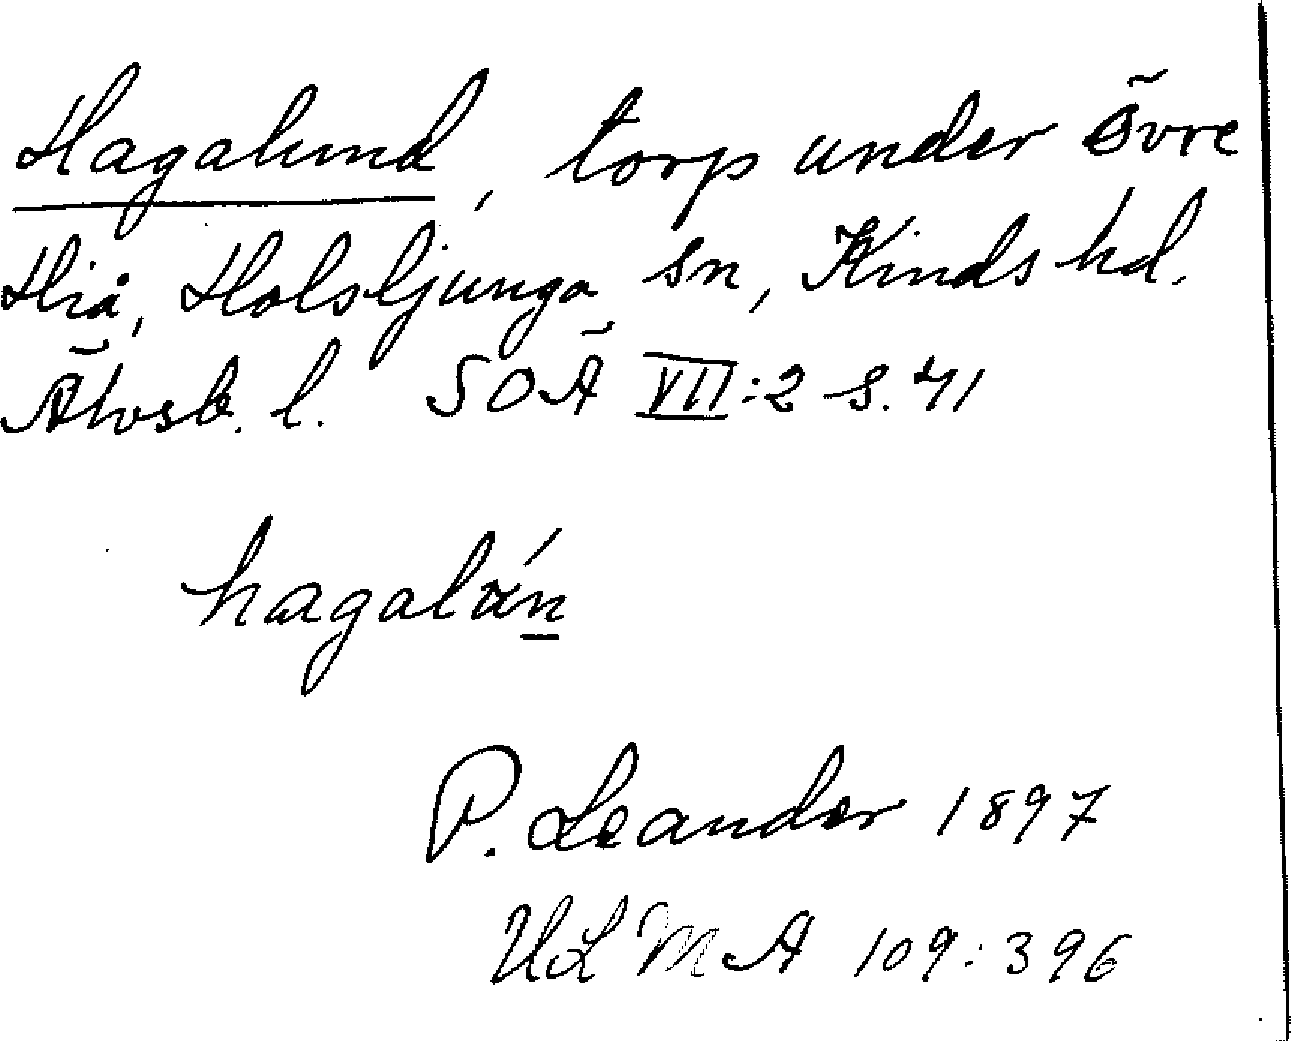 Hagalund, torp under Övre
Hiå, Holsljunga sn, Kinds hd.
Älvsb. l. SOÄ VII:2 s. 41
hagalán
P. Leander 1897
ULMA 109:396